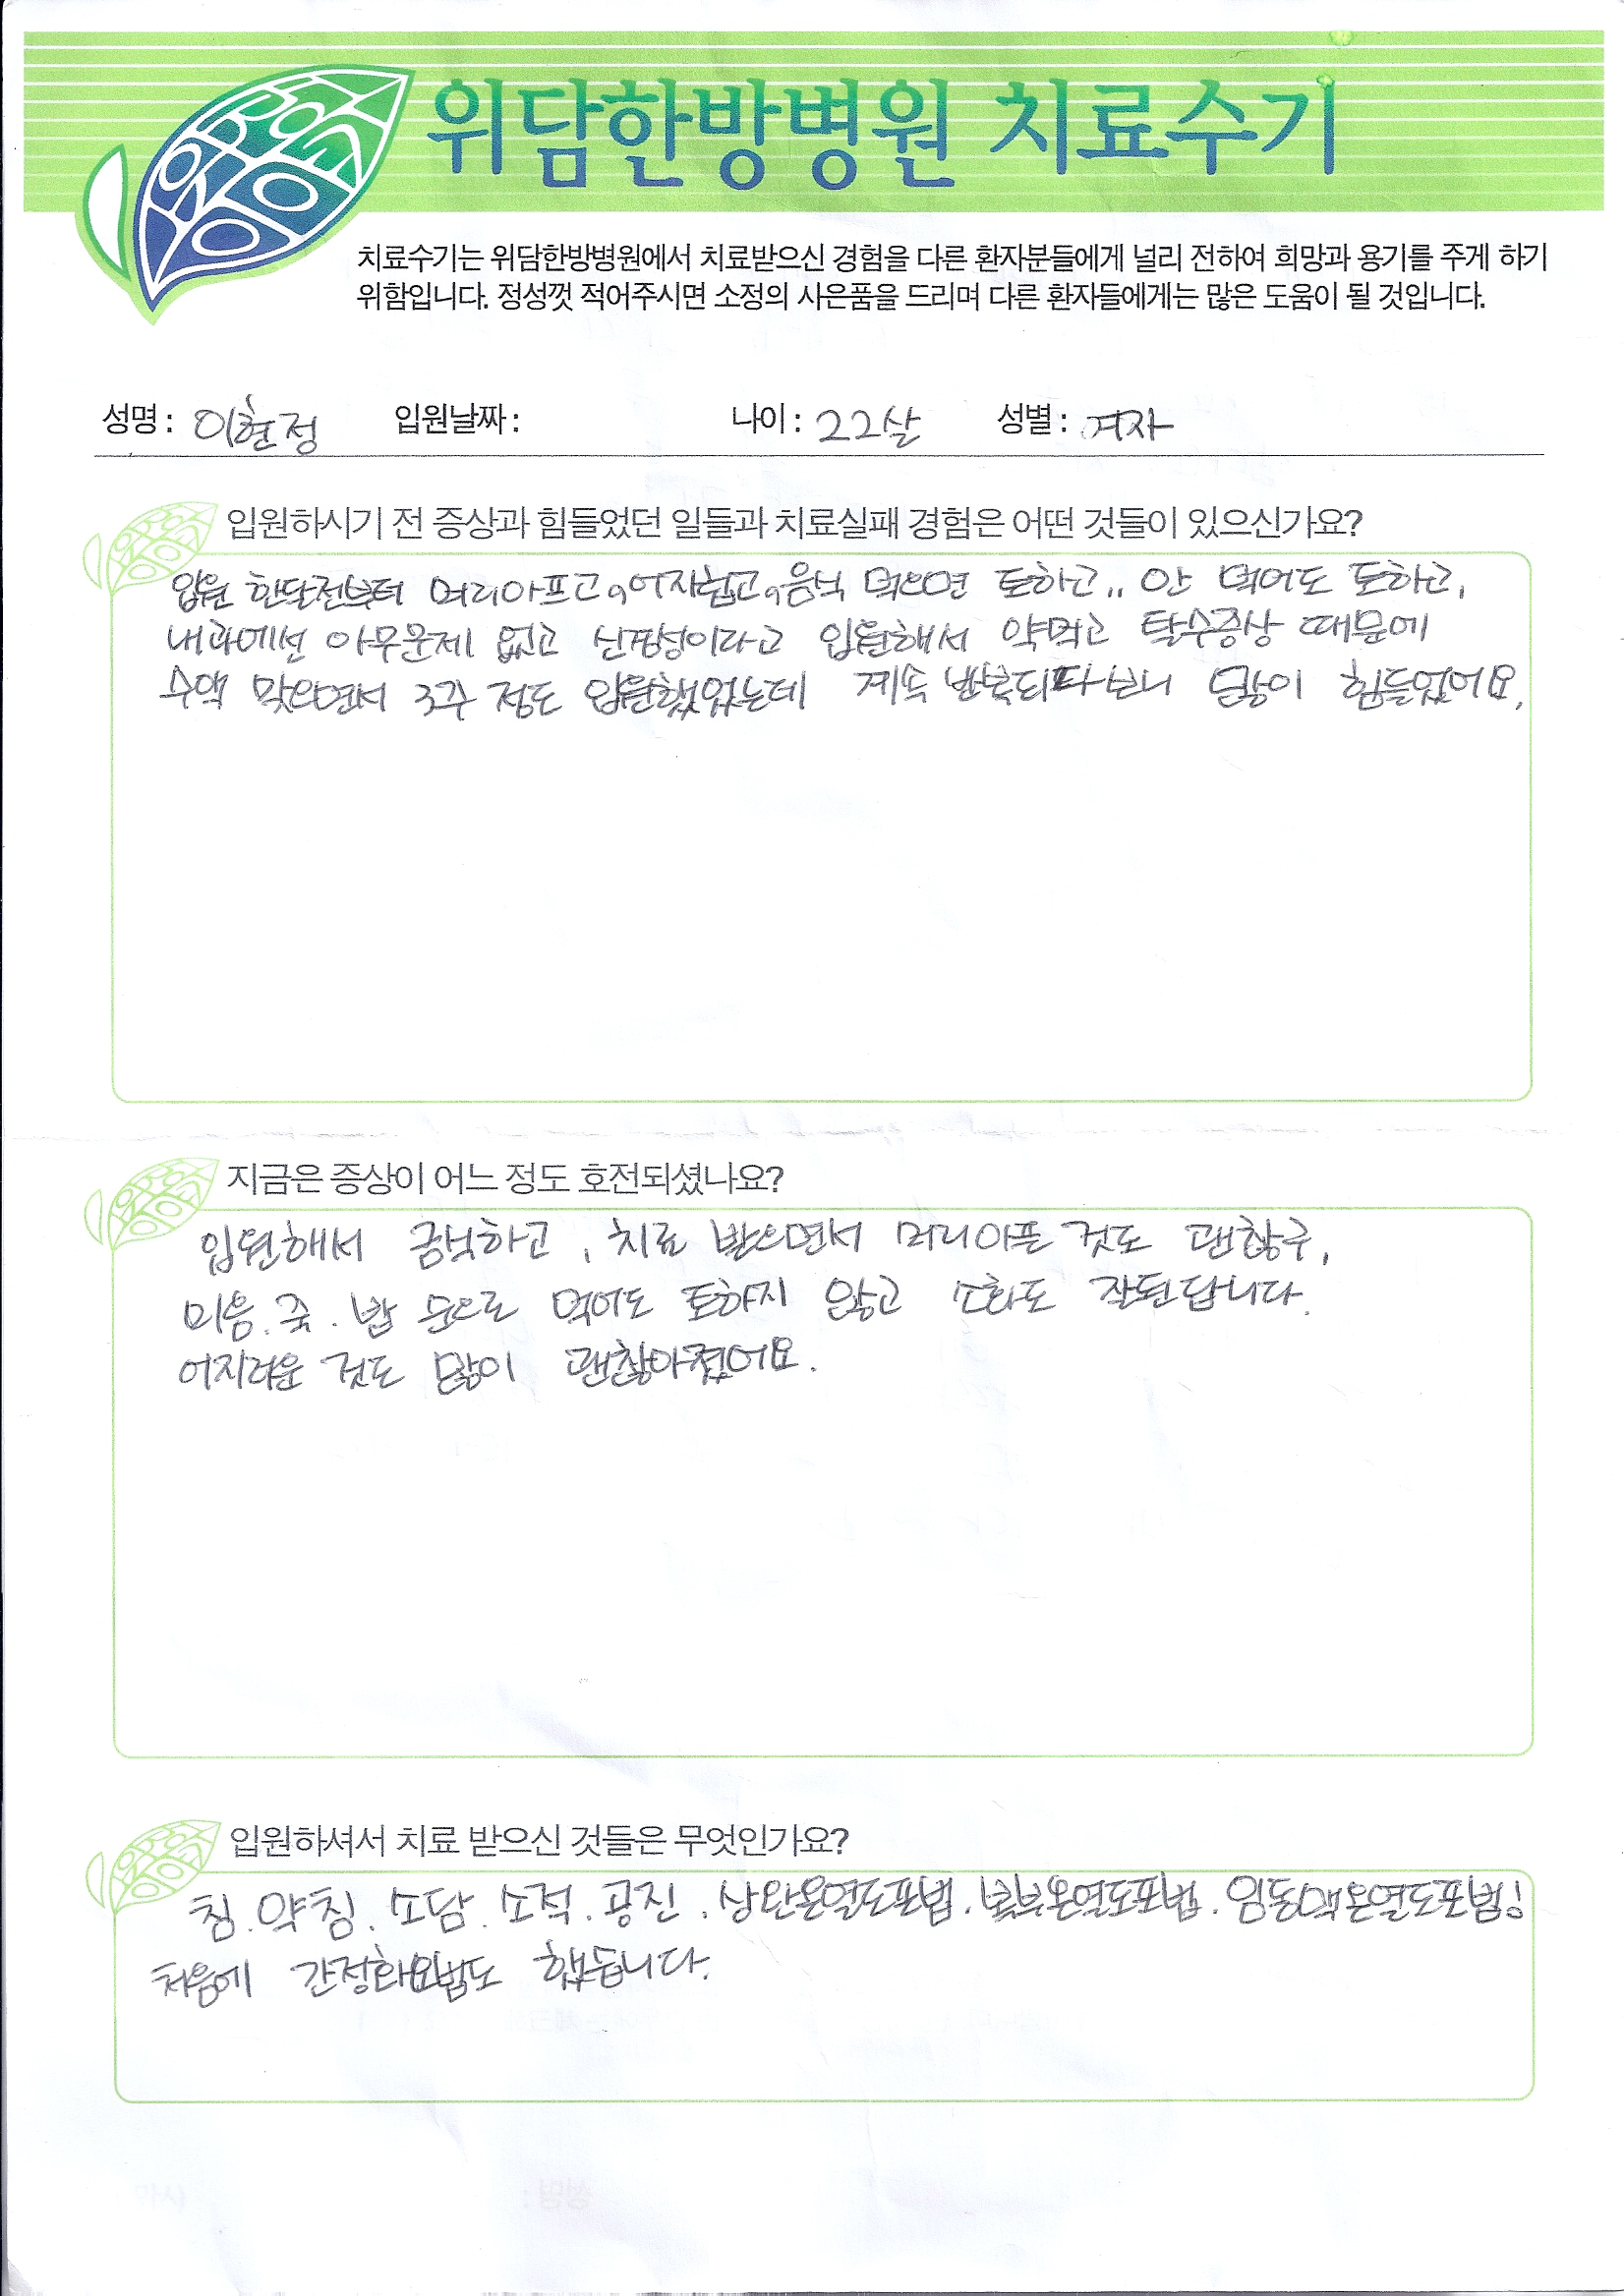 위담한방병원 치료수기
치료수기는 위담한방병원에서 치료받으신 경험을 다른 환자분들에게 널리 전하여 희망과 용기를 주게 하기
위함입니다. 정성껏 적어주시면 소정의 사은품을 드리며 다른 환자들에게는 많은 도움이 될 것입니다.
성명 : 이현정 입원날짜 : 나이 : 22살 성별 : 여자
입원하시기 전 증상과 힘들었던 일들과 치료실패 경험은 어떤 것들이 있으신가요?
입원 한달전부터 머리아프고, 어지럽고, 음식 먹으면 토하고.. 안 먹어도 토하고,
내과에선 아무문제 없고 신경성이라고 입원해서 약먹고 탈수증상 때문에
수액 맞으면서 3주 정도 입원했었는데 계속 반복되다보니 많이 힘들었어요.
지금은 증상이 어느 정도 호전되셨나요?
입원해서 금식하고, 치료 받으면서 머리아픈 것도 괜찮구,
미음. 죽. 밥 순으로 먹어도 토하지 않고 소화도 잘된답니다.
어지러운 것도 많이 괜찮아졌어요.
입원하셔서 치료 받으신 것들은 무엇인가요?
침. 약침. 소담. 소적. 공진. 상완온열도포법. 복부온열도포법. 임동맥온열도포법!
처음에 간정화요법도 했답니다.